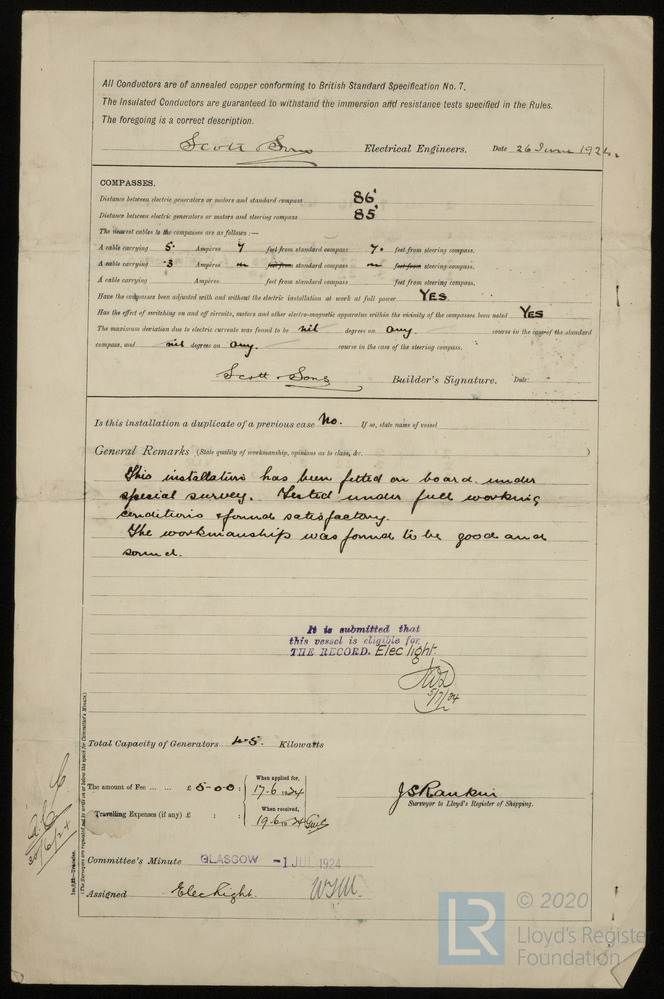 All Conductors are of annealed copper conforming to British Standard Specification No. 7.
The Insulated Conductors are guaranteed to withstand the immersion and resistance tests specified in the Rules.
The foregoing is a correct description.
Scott & Sons Electrical Engineers. Date 26 June 1924.
COMPASSES.
Distance between electric generators or motors and standard compass 86'
Distance between electric generators or motors and steering compass 85'
The nearest cables to the compasses are as follows:—
A cable carrying 5. Ampères 7 feet from standard compass 7. feet from steering compass.
A cable carrying .3 Ampères in feet from standard compass in feet from steering compass.
A cable carrying Ampères feet from standard compass feet from steering compass.
Have the compasses been adjusted with and without the electric installation at work at full power YES.
Has the effect of switching on and off circuits, motors and other electro-magnetic apparatus within the vicinity of the compasses been noted YES
The maximum deviation due to electric currents was found to be nil degrees on any. course in the case of the standard
compass, and nil degrees on any. course in the case of the steering compass.
Scott & Sons Builder's Signature. Date
Is this installation a duplicate of a previous case No. If so, state name of vessel
General Remarks (State quality of workmanship, opinions as to class, &c. )
This installation has been fitted on board under
special survey. Tested under full working
conditions & found satisfactory.
The workmanship was found to be good and
sound.
It is submitted that
this vessel is eligible for
THE RECORD. Elec light.
5/7/24
Total Capacity of Generators 4.5. Kilowatts
The amount of Fee ... ... £ 5-0-0 : When applied for, 17.6.1924
Travelling Expenses (if any) £ : : When received, 19.6.1924
J S Rankin
Surveyor to Lloyd's Register of Shipping.
Committee's Minute GLASGOW -1 JUL 1924
Assigned Elec Light.
(The Surveyors are requested not to write on or below the space for Committee's Minute.)
30/6/24
© 2020
LR
Lloyd's Register
Foundation